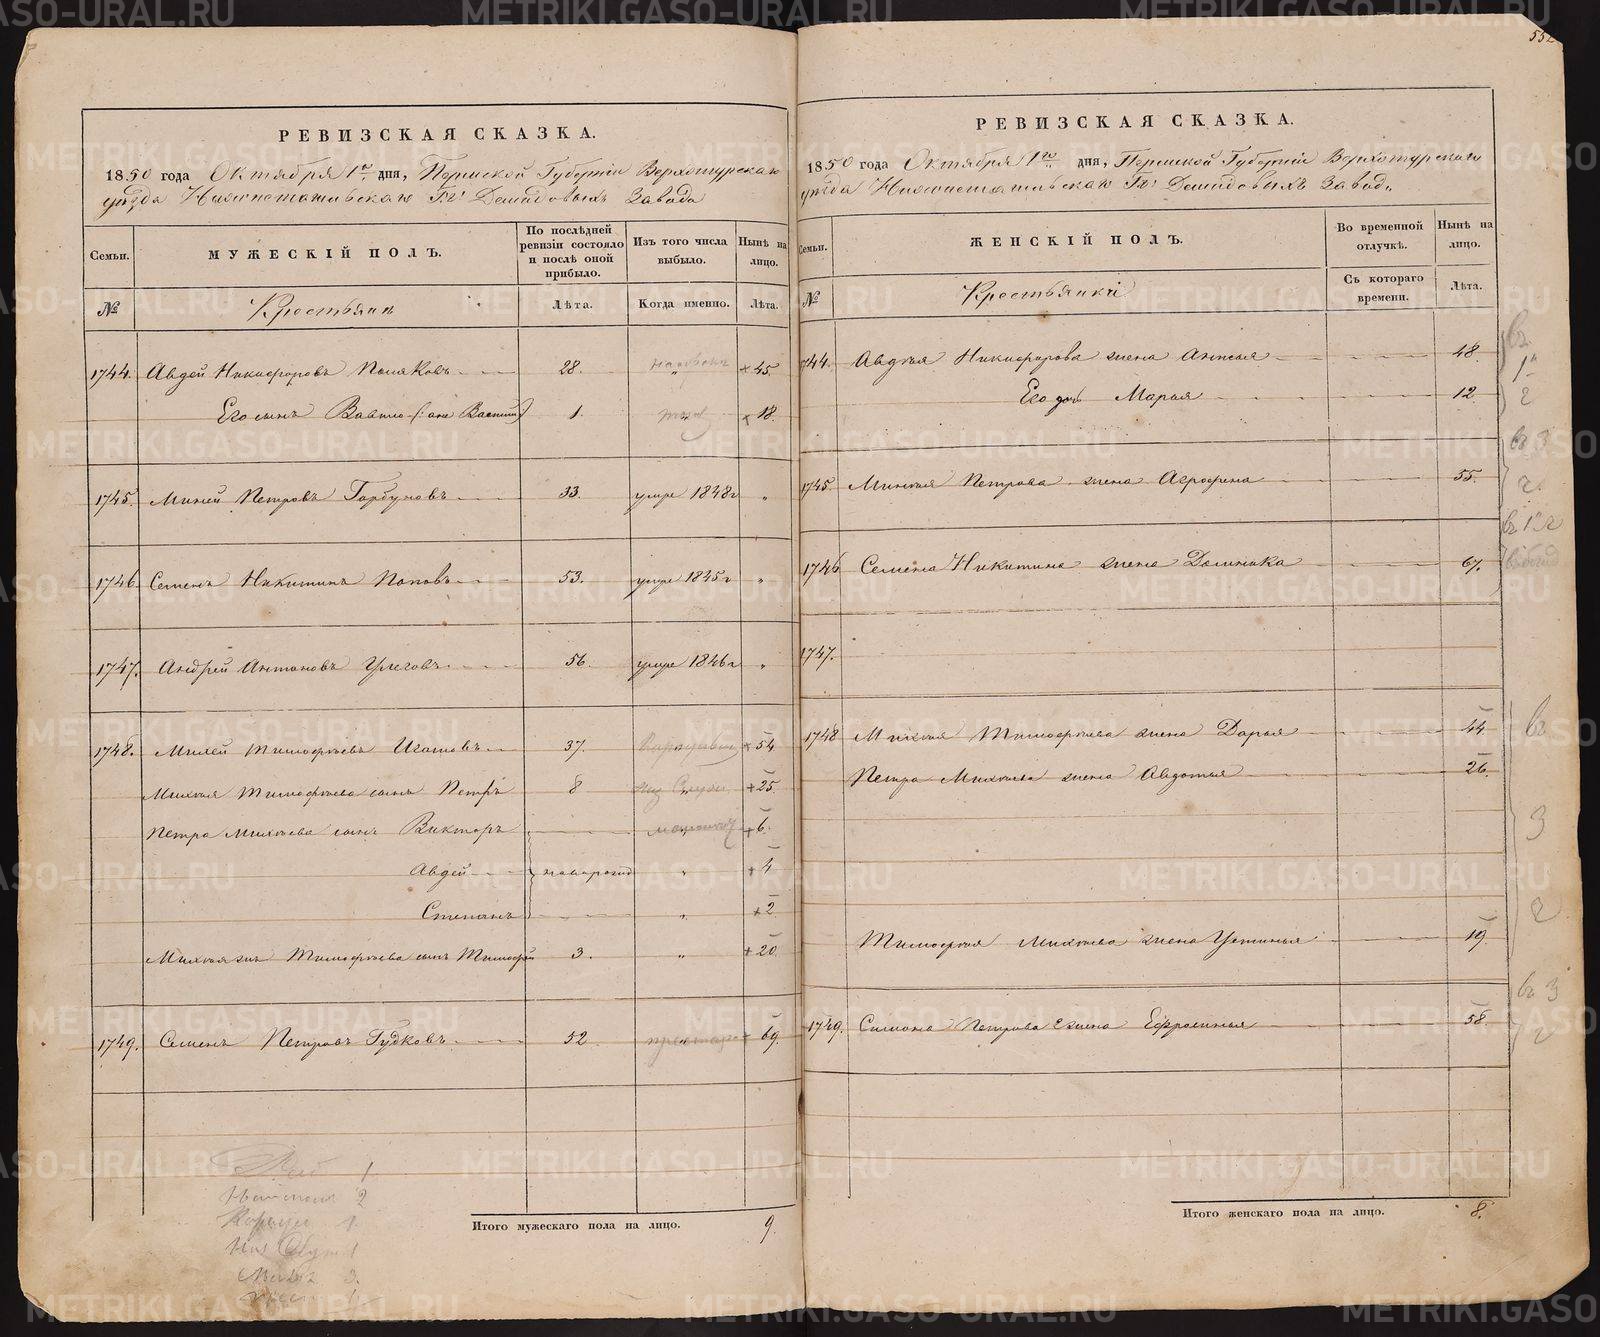 552
РЕВИЗСКАЯ СКАЗКА.
1850 года Октября 1го дня, Пермской Губернiи Верхотурскаго
уѣзда Нижнетагильскаго Гг. Демидовыхъ Завода
Семьи.
МУЖЕСКIЙ ПОЛЪ.
По послѣдней ревизiи состояло и послѣ оной прибыло.
Изъ того числа выбыло.
Нынѣ на лицо.
№
Крестьянъ
Лѣта.
Когда именно.
Лѣта.
1744. Авдей Никифоровъ Поляковъ 28. " + 45
Его сынъ Вавило (: онъ 1. " + 18.
1745. Миней Петровъ Горбуновъ 33. умре 1848г "
1746 Семенъ Никитинъ Поповъ 53. умре 1845г "
1747. Андрей Антоновъ 56. умре 1846г "
1748. Михей Тимофѣевъ 37. + 54
Михѣя Тимофѣева сынъ Петръ 8 " + 25
Петра Михѣева сынъ Викторъ + 6
Авдей новорожд " + 4
Степанъ " + 2
Михѣя Тимофѣева сынъ Тимофей 3. " + 20
1749. Семенъ Петровъ Гудковъ 52 " + 69
Итого мужескаго пола на лицо. 9.
РЕВИЗСКАЯ СКАЗКА.
1850 года Октября 1го дня, Пермской Губернiи Верхотурскаго
уѣзда Нижнетагильскаго Гг. Демидовыхъ Завода
Семьи.
ЖЕНСКIЙ ПОЛЪ.
Во временной отлучкѣ.
Нынѣ на лицо.
№
Крестьянки
Съ котораго времени.
Лѣта.
744. Авдѣя Никифорова жена Анисья 48
Его дочь Марья 12
1745. Минѣя Петрова жена Агрофена 55.
1746 Семена Никитина жена Домника 67.
1747.
1748 Михѣя Тимофѣева жена Дарья 44
Петра Михѣева жена Авдотья 26.
Тимофѣя Михѣева жена Устинья 19
1749. Семена Петрова жена Ефросинья 58
Итого женскаго пола на лицо. 8.
METRIKI.GASO-URAL.RU